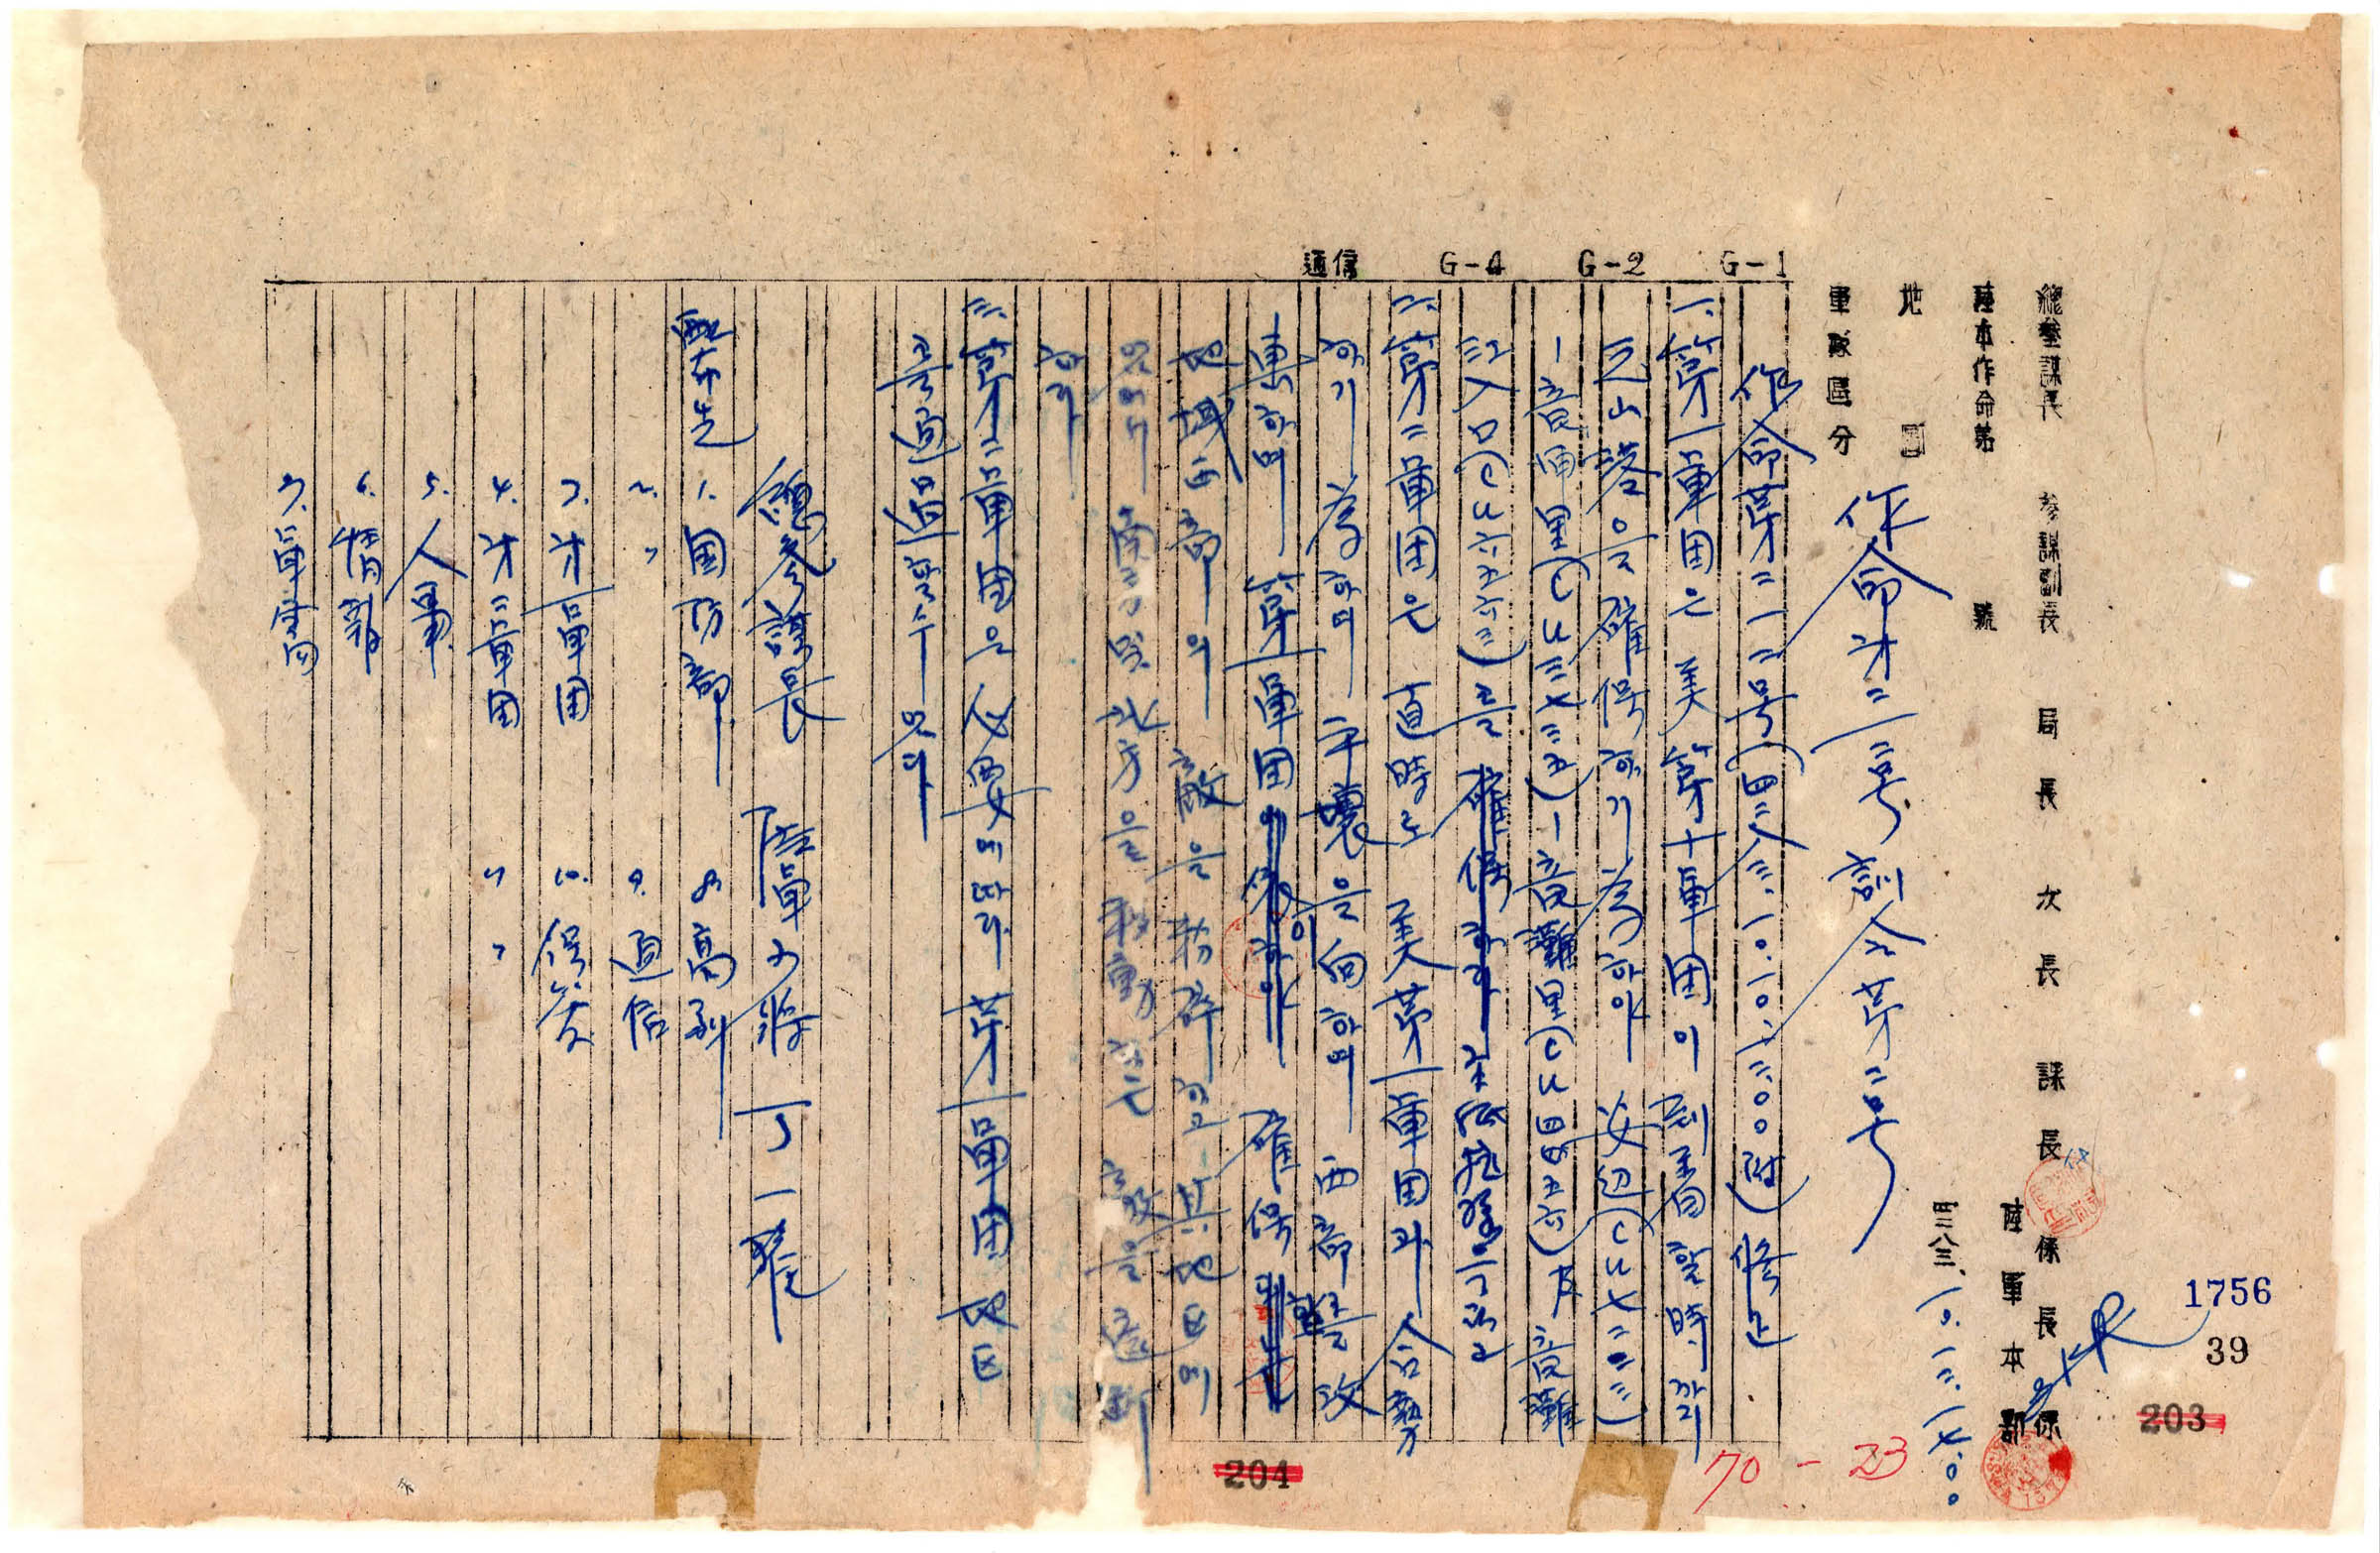 總參謀長 參謀副長 局長 次長 課長 係長 係
陸本作命第 號
陸軍本部
四二八三、一〇、一二、一七、〇〇
地圖
軍隊區分
作命才二一三号 訓令第二号
G-1
G-2
G-4
通信
作命第二一二号(四二八三、一〇、一〇、一三:〇〇附) 修正
一、第一軍団은 美第十軍団이 到着할時까지
元山港을 確保하기 為하야 安辺(CU七二三三)
一高山里(CU三七三五)一高灘里(CU四四五六) 及 高灘
里入口(CU六五六三)를 確保하라
二、第二軍団은 直時로 美第一軍団과 合勢
하기 為하며 平壤을 向하며 西部를 攻
東하며 第一軍団이 確保
地域 西部의 敵을 粉碎하고 其地区에
있어서 南方 및 北方을 移動하는 敵을 遮斷
하라
三、第二軍団은 必要에 따라 第一軍団 地区
를 通過할수 있다
總參謀長 陸軍少將 丁一權
配布先 1. 国防部 8. 高級
2. 〃 9. 通信
3. 才一軍団 10. 保安
4. 才二軍団 〃 〃
5. 人事
6. 情報
7. 軍需局
1756
39
203
204
70-23